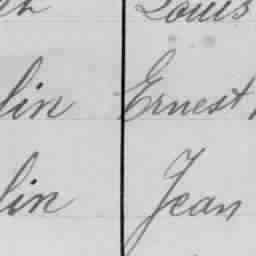 Louis
lin Ernest
lin Jean